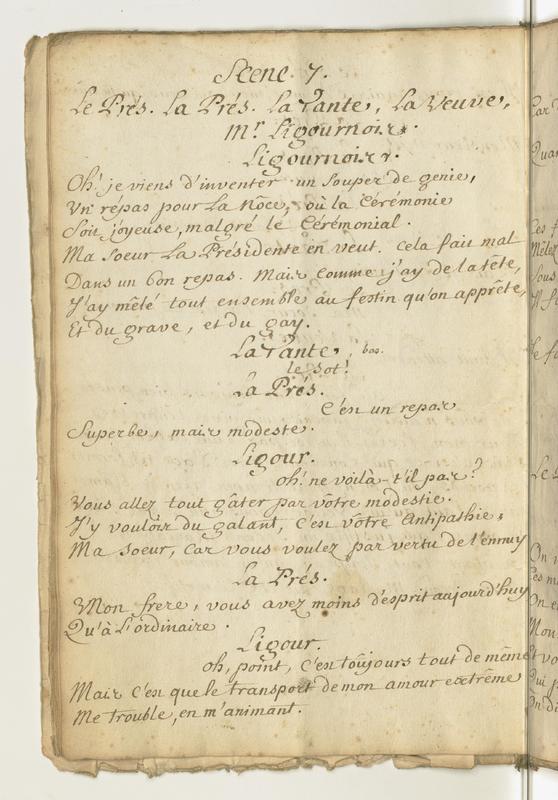 Scene 7.
Le Prés. La Prés. La Tante, La Veuve,
Mr. Ligournois.
Ligournois.
Oh! je viens d'inventer un souper de genie,
Un repas pour La Nôce, où la Cérémonie
Soit joyeuse, malgré le Cérémonial.
Ma soeur La Présidente en veut. Cela fait mal
Dans un bon repas. Mais comme j'ay de la tête,
J'ay mêlé tout ensemble au festin qu'on apprête,
Et du grave, et du gay.
La Tante, bas.
le sot!
La Prés.
C'est un repas
Superbe, mais modeste.
Ligour.
oh! ne voilà-t'il pas?
Vous allez tout gâter par vôtre modestie.
J'y voulois du galant, C'est vôtre Antipathie,
Ma soeur, Car vous voulez par vertu de l'ennuy
La Prés.
Mon frere, vous avez moins d'esprit aujourd'huy
Qu'à L'ordinaire.
Ligour.
oh, point, C'est toûjours tout de même
Mais C'est que le transport de mon amour extrême
Me trouble, en m'animant.